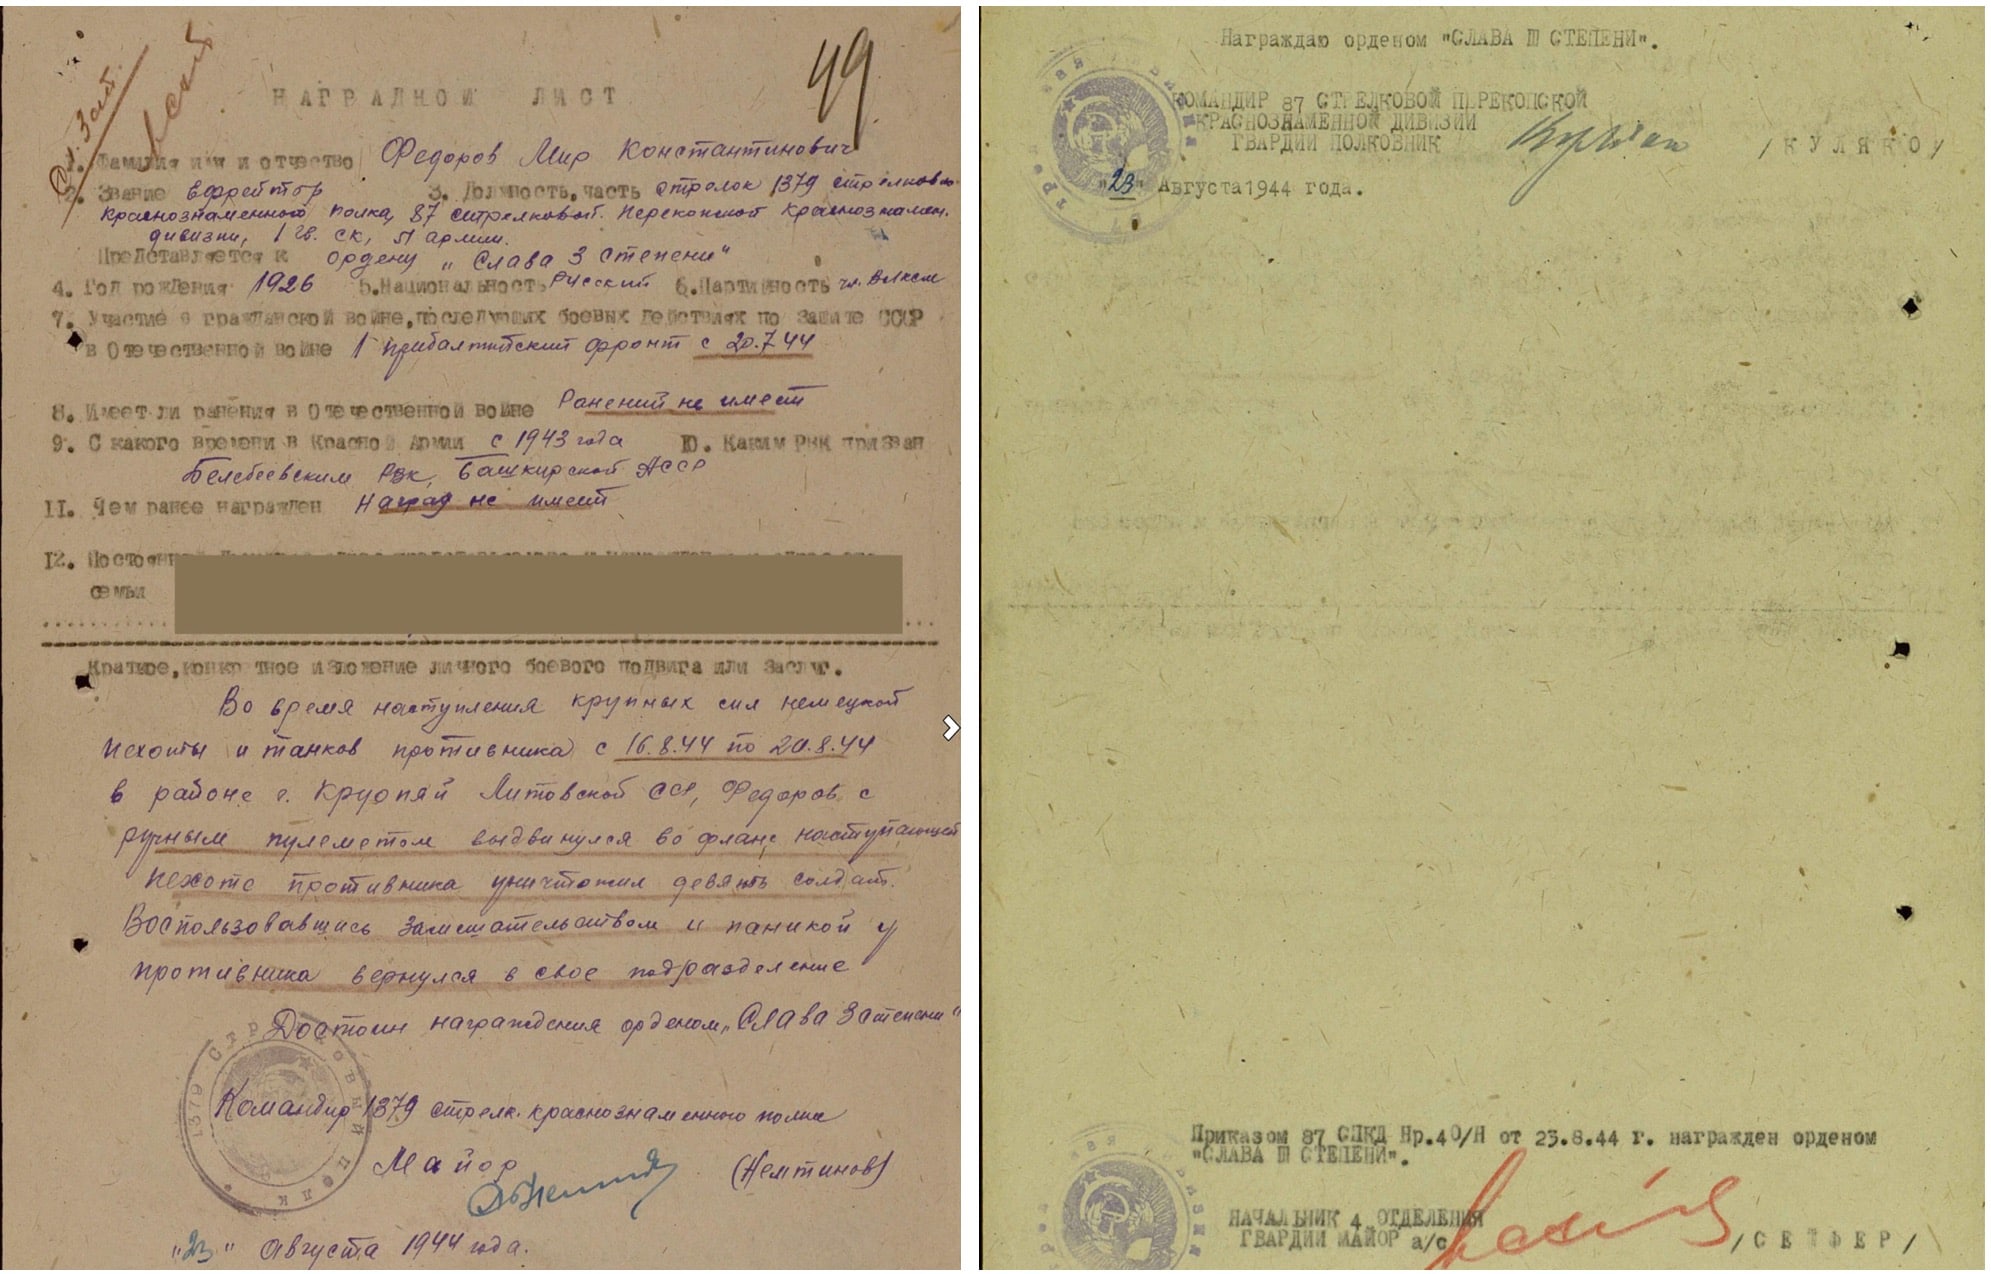 49
НАГРАДНОЙ ЛИСТ
1. Фамилия имя и отчество Федоров Мир Константинович
2. Звание Ефрейтор 3. Должность, часть стрелок 1379 стрелкового
Краснознаменного полка, 87 стрелковой Перекопской Краснознамен.
дивизии, 1 гв. ск, 51 армии.
Представляется к ордену „Слава 3 степени"
4. Год рождения 1926 5. Национальность Русский 6. Партийность чл. ВЛКСМ
7. Участие в гражданской войне, последующих боевых действиях по защите СССР
в Отечественной войне 1 прибалтийский фронт с 20.7.44
8. Имеет ли ранения в Отечественной войне Ранений не имеет
9. С какого времени в Красной Армии с 1943 года 10. Каким РВК призван
Белебеевским РВК, Башкирской АССР
11. Чем ранее награжден Наград не имеет
12.
семьи
Краткое, конкретное изложение личного боевого подвига или заслуг.
Во время наступления крупных сил немецкой
пехоты и танков противника с 16.8.44 по 20.8.44
в районе г. Круопяй Литовской ССР, Федоров с
ручным пулеметом выдвинулся во фланг наступающей
пехоте противника уничтожил девять солдат.
Воспользовавшись замешательством и паникой у
противника вернулся в свое подразделение
Достоин награждения орденом „Слава 3 степени"
Командир 1379 стрелк. краснознаменного полка
Майор (Немтинов)
"23" Августа 1944 года.
1379 СТРЕЛКОВЫЙ ПОЛК
Награждаю орденом "СЛАВА III СТЕПЕНИ".
КОМАНДИР 87 СТРЕЛКОВОЙ ПЕРЕКОПСКОЙ
КРАСНОЗНАМЕННОЙ ДИВИЗИИ
ГВАРДИИ ПОЛКОВНИК /КУЛЯКО/
"23" Августа 1944 года.
Приказом 87 СПКД Нр.40/Н от 23.8.44 г. награжден орденом
"СЛАВА III СТЕПЕНИ".
НАЧАЛЬНИК 4 ОТДЕЛЕНИЯ
ГВАРДИИ МАЙОР а/с /СЕЙФЕР/